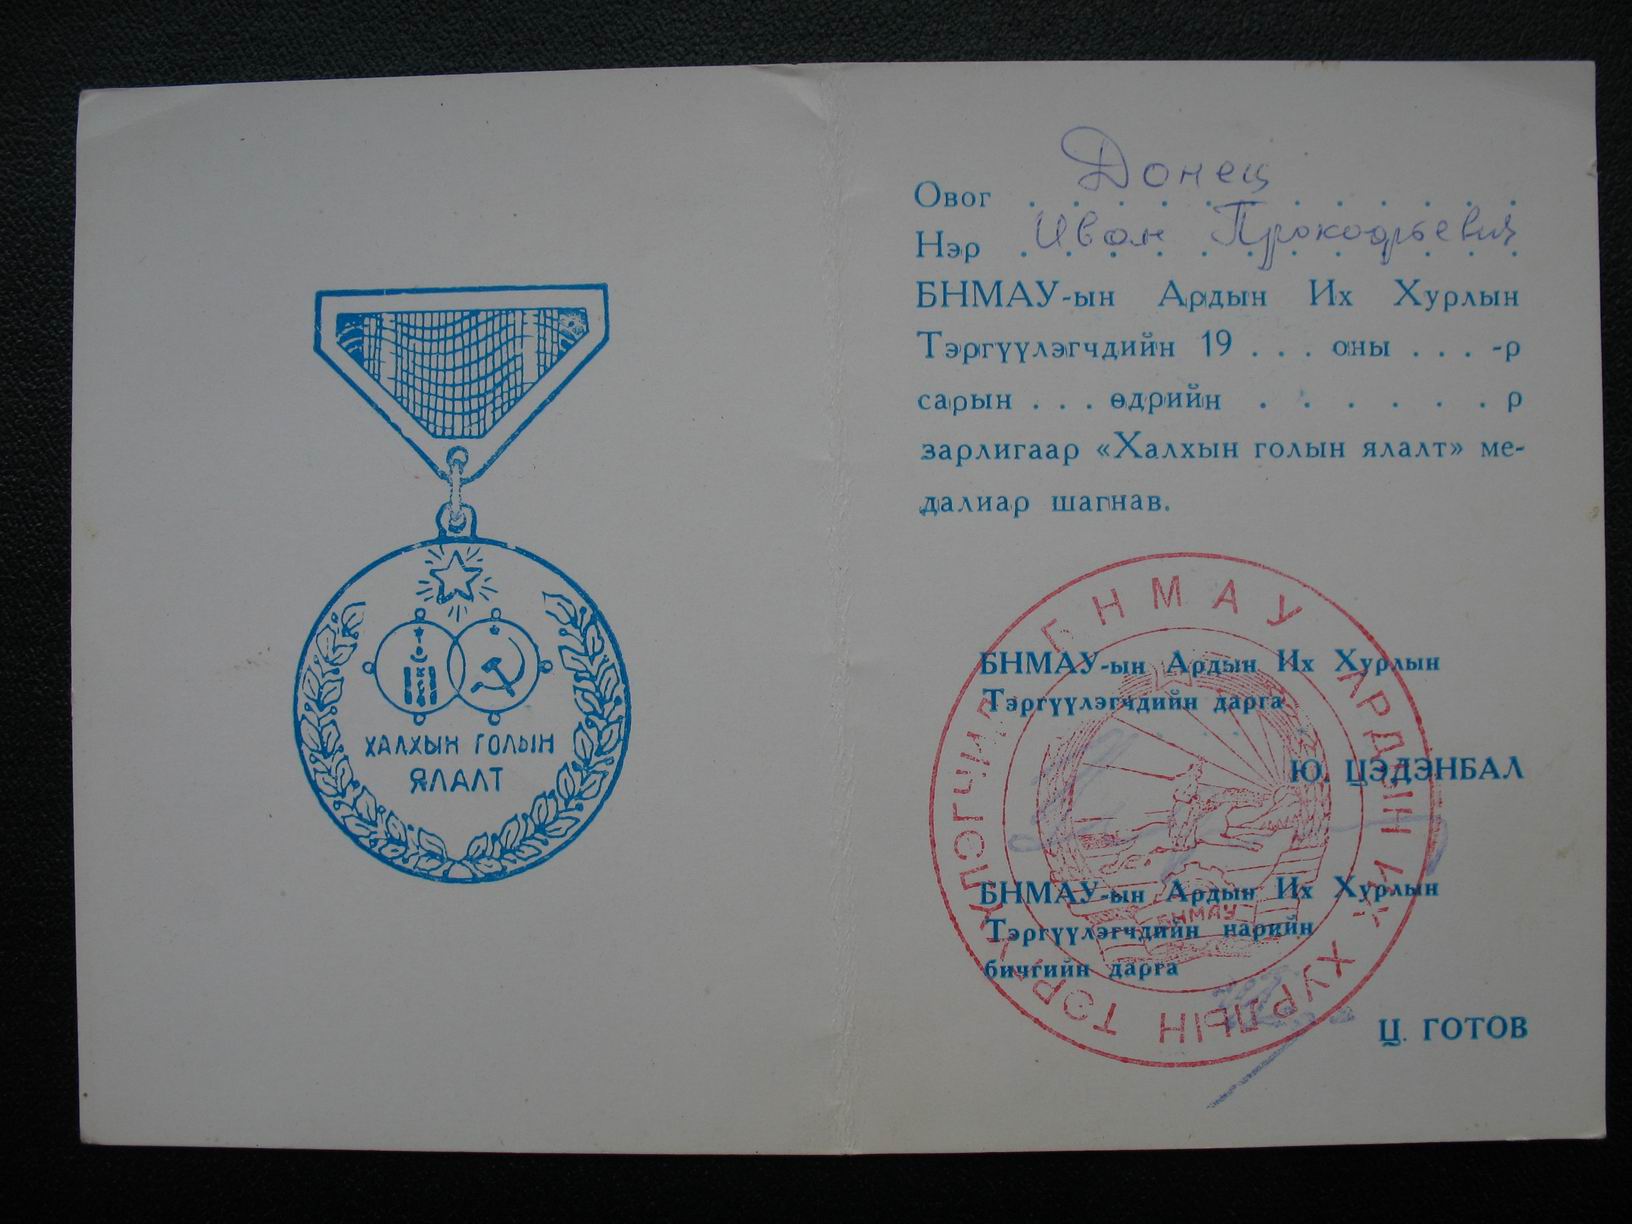 ХАЛХЫН ГОЛЫН
ЯЛАЛТ
Овог Донец
Нэр Иван Прокофьевич
БНМАУ-ын Ардын Их Хурлын
Тэргүүлэгчдийн 19 . . . оны . . . -р
сарын . . . өдрийн . . . . . . р
зарлигаар «Халхын голын ялалт» ме-
далиар шагнав.
БНМАУ-ын Ардын Их Хурлын
Тэргүүлэгчдийн дарга
Ю. ЦЭДЭНБАЛ
БНМАУ-ын Ардын Их Хурлын
Тэргүүлэгчдийн нарийн
бичгийн дарга
Ц. ГОТОВ
БНМАУ АРДЫН ИХ ХУРЛЫН ТЭРГҮҮЛЭГЧИД
БНМАУ